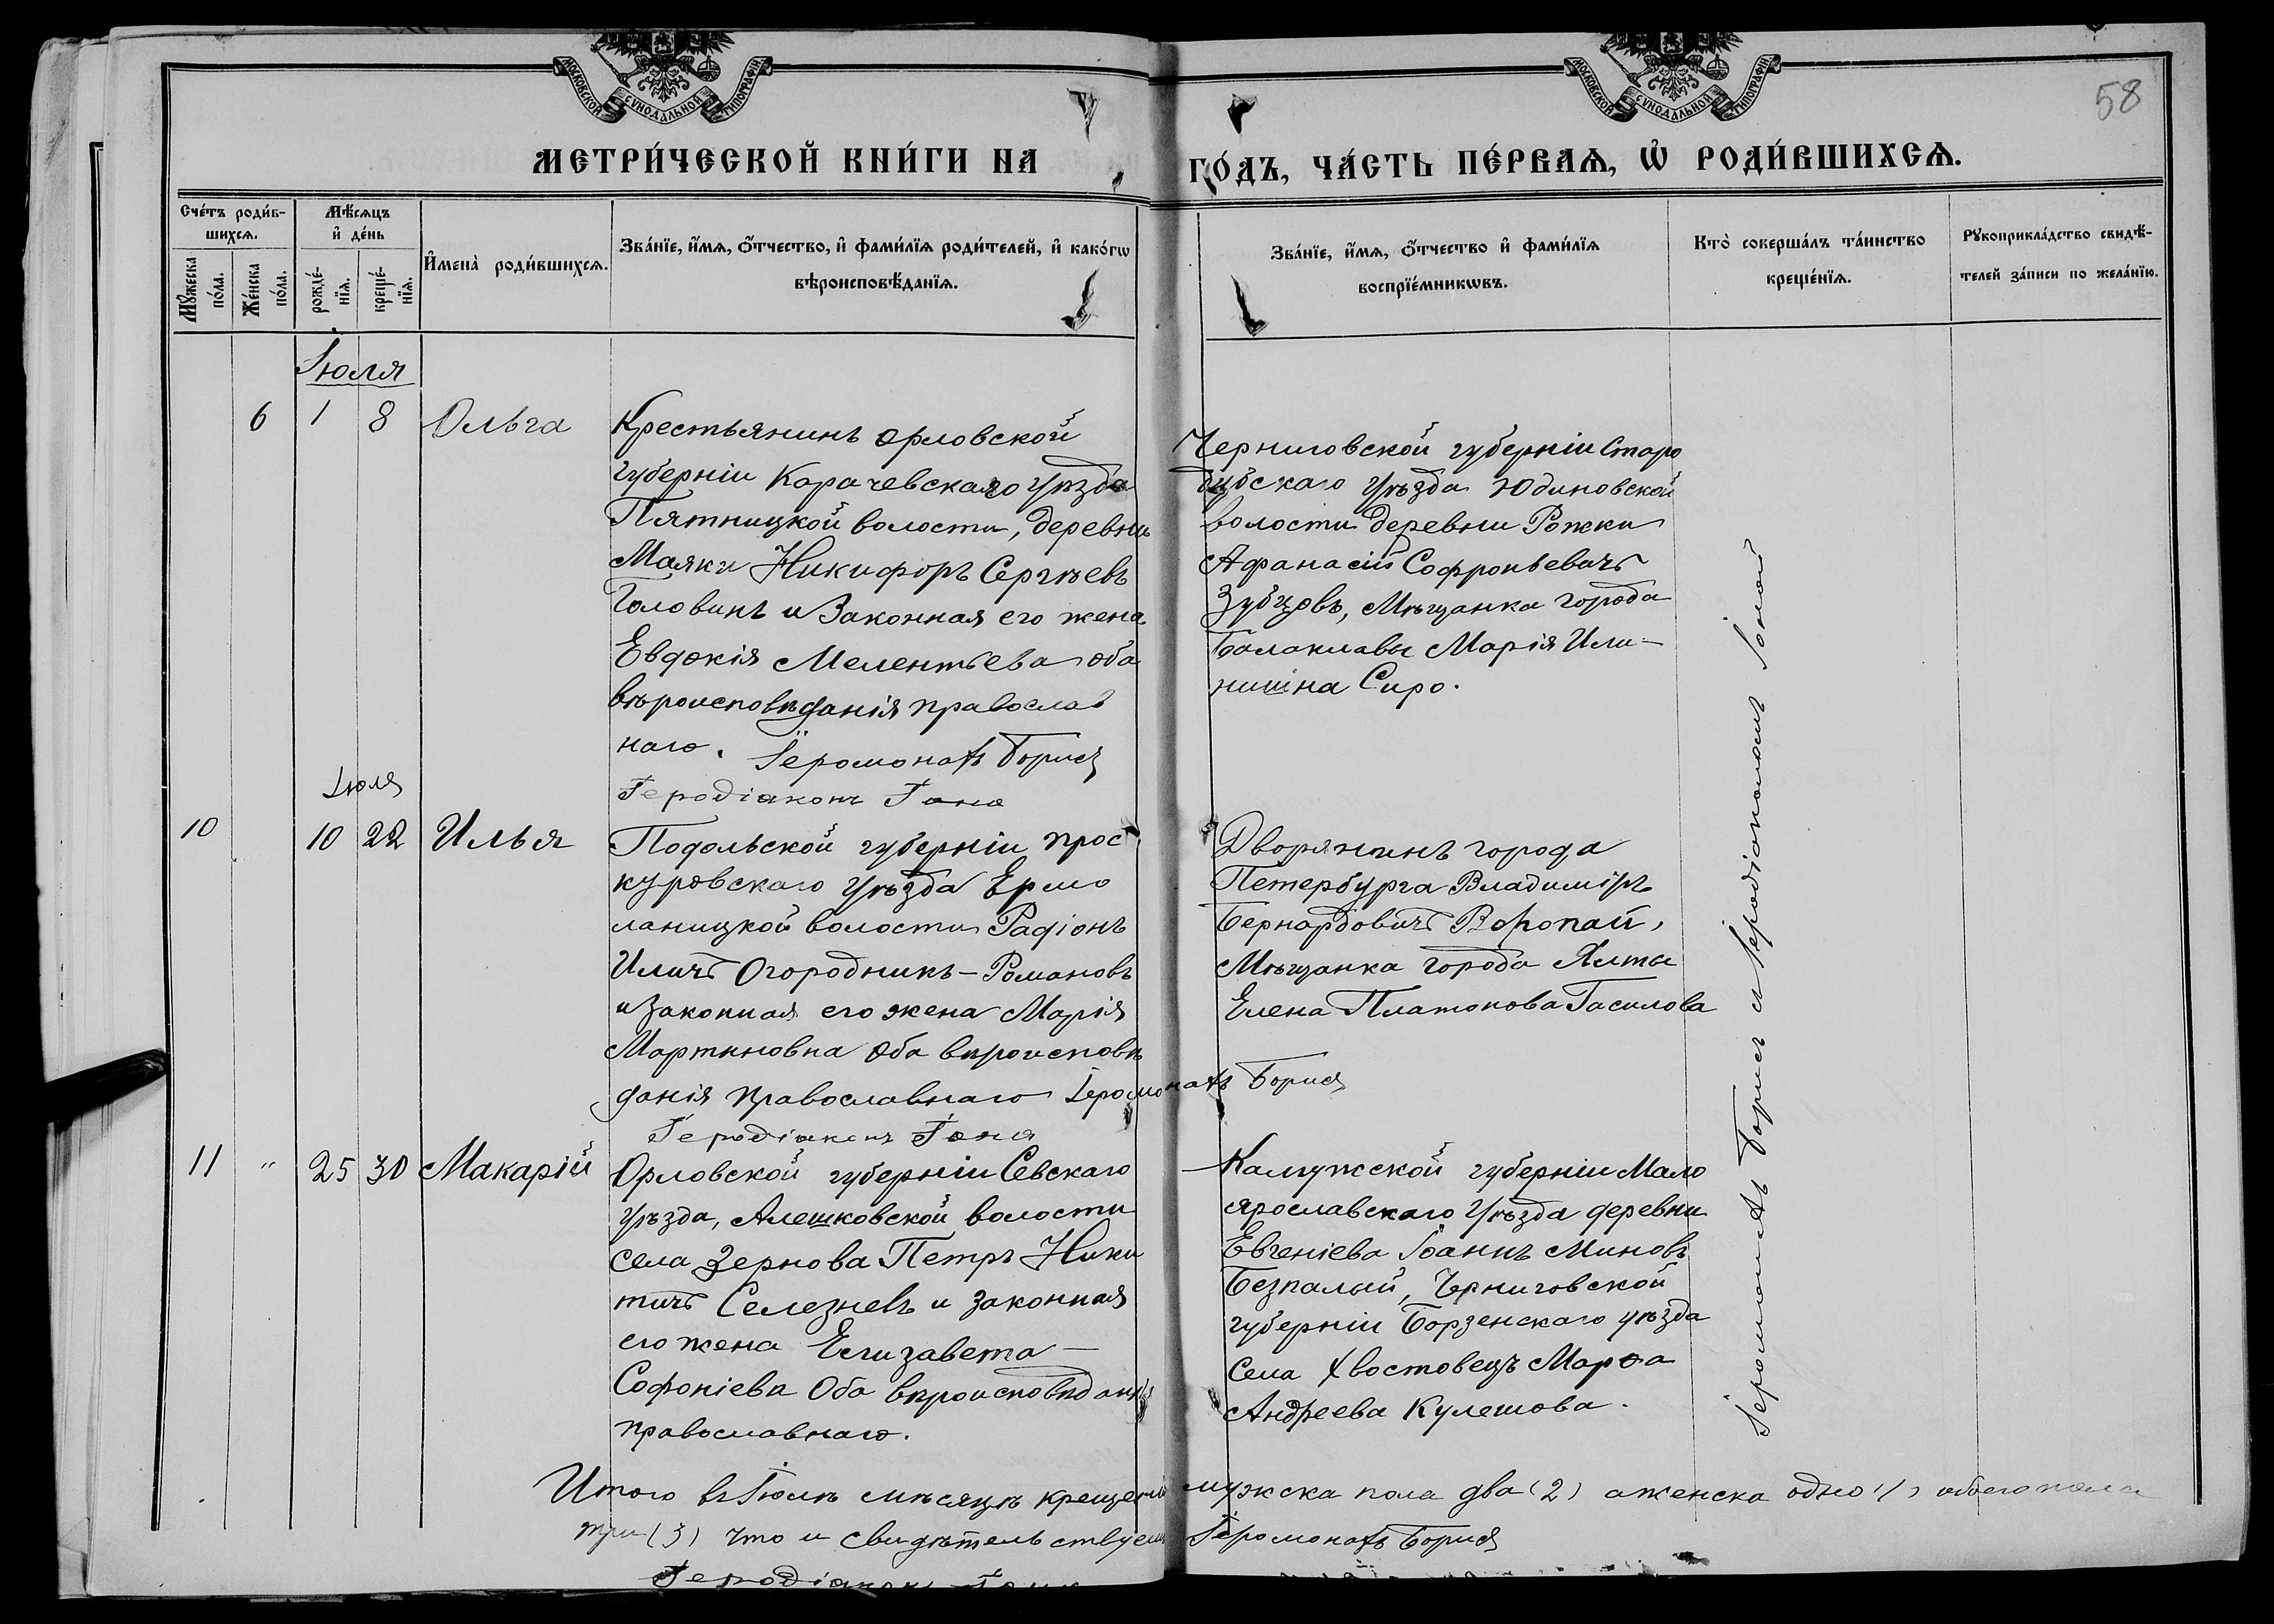 МОСКОВСКОЙ СУНОДАЛЬНОЙ ТИПОГРАФІИ
МОСКОВСКОЙ СУНОДАЛЬНОЙ ТИПОГРАФІИ
58
МЕТРИ́ЧЕСКОЙ КНИ́ГИ НА ГО́ДЪ, ЧА́СТЬ ПЕ́РВАѦ, Ѡ҆ РОДИ́ВШИХСѦ.
Сче́тъ роди́в-
шихсѧ.
Мꙋ́жеска по́ла.
Же́нска по́ла.
Мѣ́сѧцъ
и҆ де́нь
рожде́-
нїѧ.
креще́-
нїѧ.
И҆мена̀ роди́вшихсѧ.
Зва́нїе, и҆́мѧ, ѻ҆́тчество, и҆ фами́лїѧ роди́телей, и҆ како́гѡ
вѣроисповѣ́данїѧ.
Зва́нїе, и҆́мѧ, ѻ҆́тчество и҆ фами́лїѧ
воспрїе́мникѡвъ.
Кто̀ соверша́лъ та́инство
креще́нїѧ.
Рꙋкоприкла́дство свидѣ́-
телей за́писи по жела́нїю.
Іюля
6 1 8 Ольга
Крестьянинъ Орловской
губерніи Карачевскаго уѣзда
Пятницкой волости, деревни
Маяки Никифоръ Сергѣевъ
Головинъ и Законная его жена
Евдокія Мелентьева оба
вѣроисповѣданія православ
наго. Іеромонахъ Борисъ
Іеродіаконъ Іона
Черниговской губерніи Старо
дубскаго уѣзда Юдиновской
волости деревни Рожки
Афанасій Софроньевичъ
Зубцовъ, Мѣщанка города
Балаклавы Марія Или-
нишна Сиро.
Іюля
10 10 22 Илья
Подольской губерніи Прос
куровскаго уѣзда Ермо
ланицкой волости Радіонъ
Иличъ Огородникъ-Романовъ
и Законная его жена Марія
Мартиновна Оба вѣроисповѣ
данія Православнаго Іеромонахъ Борисъ
Іеродіаконъ Іона
Дворянинъ города
Петербурга Владиміръ
Бернардовичъ Воропай,
Мѣщанка города Ялты
Елена Платонова Гасилова
11 " 25 30 Макарій
Орловской губерніи Севскаго
уѣзда, Алешковской волости
села Зернова Петръ Ники
тичъ Селезневъ и законная
его жена Елизавета
Софоніева Оба вѣроисповѣданія
православнаго.
Калужской губерніи Мало
ярославскаго уѣзда деревни
Евгеніева Іоаннъ Миновъ
Безпалый, Черниговской
губерніи Борзенскаго уѣзда
Села Хвостовецъ Марѳа
Андреева Кулешова.
Іеромонахъ Борисъ и Іеродіакономъ Іоной
Итого въ Іюлѣ мѣсяцѣ крещено мужска пола два (2) а женска одно (1) обоего пола
три (3) что и свидѣтельствуемъ Іеромонахъ Борисъ
Іеродіаконъ Іона